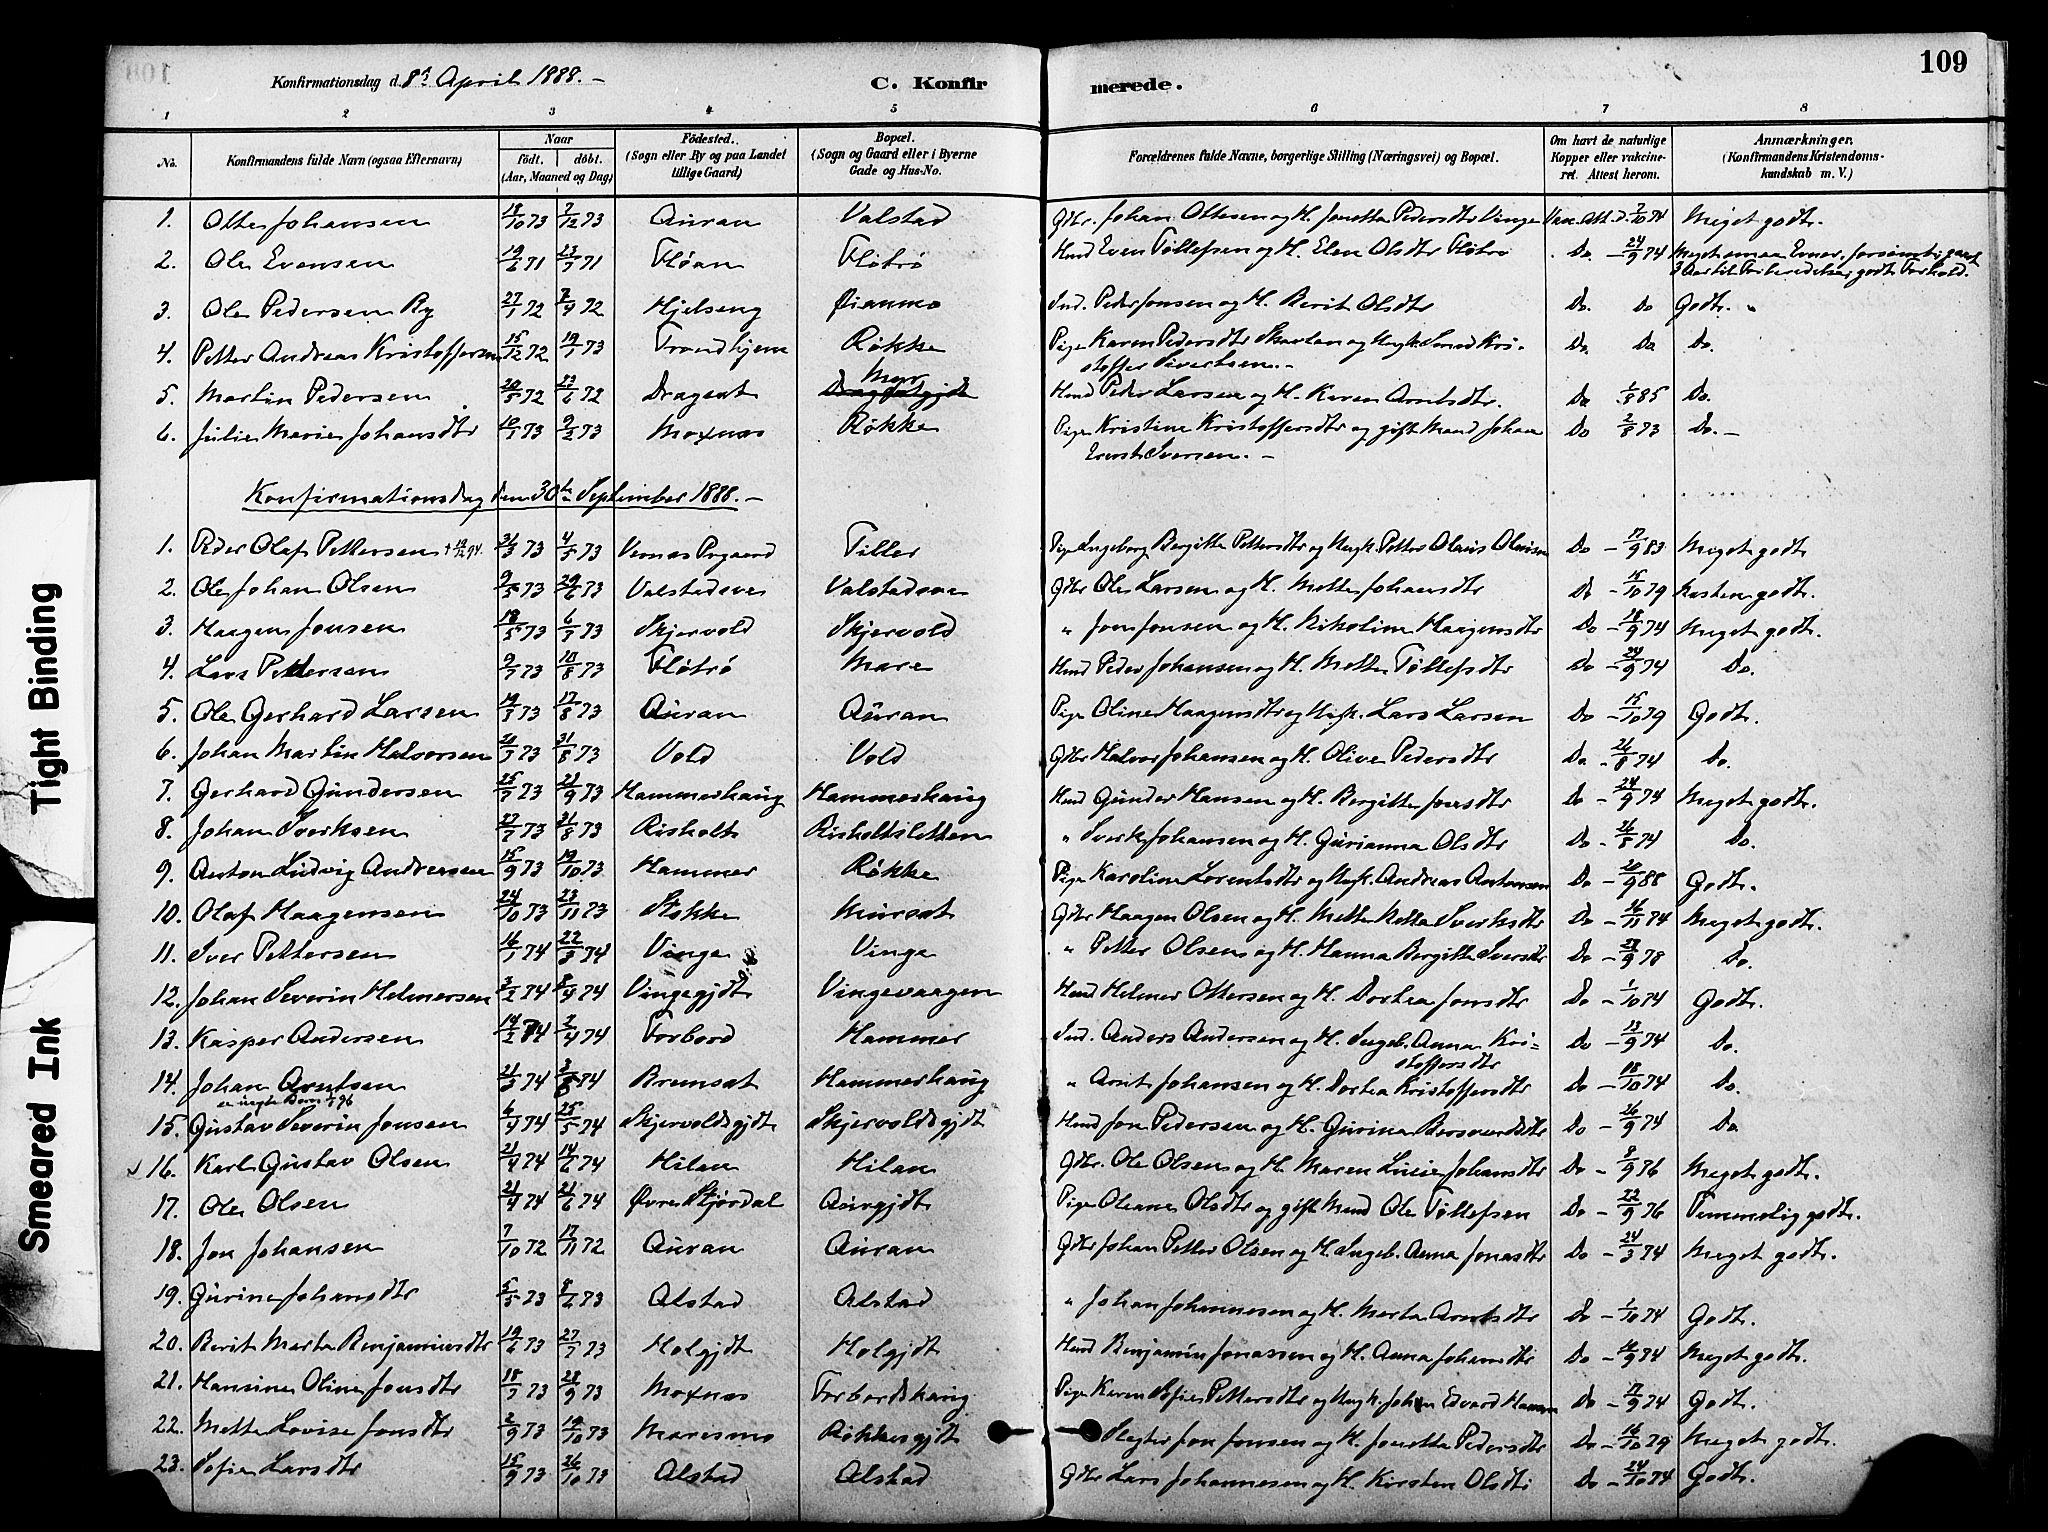 109
Konfirmationsdag d. 8de April 1888. –
C. Konfirmerede.
1 2 3 4 5 6 7 8
No. Konfirmandens fulde Navn (ogsaa Efternavn) Naar født. døbt. (Aar, Maaned og Dag) Fødested. (Sogn eller By og paa Landet tillige Gaard) Bopæl. (Sogn og Gaard eller i Byerne Gade og Hus-No. Forældrenes fulde Navne, borgerlige Stilling (Næringsvei) og Bopæl. Om havt de naturlige Kopper eller vakcineret. Attest herom. Anmærkninger. (Konfirmandens Kristendomskundskab m. V.)
1. Otte Johansen 18/10 73 7/12 73 Auran Valstad Gbr. Johan Ottesen og H. Jonetta Pedersdtr Vinge Vax. Att. d. 2/10 74 Meget godt.
2. Ole Evensen 19/6 71 23/7 71 Fløan Fløtrø Hmd Even Tøllefsen og H. Elen Olsdtr Fløtrø Do. – 24/9 74 Meget smaa Evner, forsømt, godt Forhold.
3. Ole Pedersen Ry 27/1 72 7/4 72 Hjelseng Øianmo Ind. Peder Jonsen og H. Berit Olsdtr Do. Do Godt.
4. Petter Andreas Kristoffersen 15/12 72 19/1 73 Trondhjem Røkke Pige Karen Pedersdtr Skavlan og Ungk. Smed Kristoffer Sivertsen. – Do. Do Do.
5. Martin Pedersen 20/5 72 23/6 72 Dragsat Myr Hmd Peder Larsen og H. Karen Arntsdtr. Do 1/8 85 Do.
6. Julie Marie Johansdtr 10/1 73 9/2 73 Moxnes Røkke Pige Kristine Kristoffersdtr og gift Mand Johan Ernst Iversen. – Do 2/8 73 Do. –
Konfirmationsdag den 30te September 1888. –
1. Peder Olaf Pettersen 31/3 73 4/5 73 Vernes Prgaard Tiller Pige Ingeborg Bergitte Pettersdtr og Ungk. Petter Olaus Olausen Do – 17/9 83 Meget godt
2. Ole Johan Olsen 9/5 73 29/6 73 Valstadsve Valstadsve Gbr Ole Larsen og H. Mette Johansdtr Do – 15/10 79 Næsten godt.
3. Haagen Jonsen 18/5 73 6/7 73 Skjervold Skjervold " Jon Jonsen og H. Nikoline Haagensdtr Do – 18/9 74 Meget godt.
4. Lars Pedersen 9/7 73 10/8 73 Fløtrø Mære Hmd Peder Johansen og H. Mette Tøllefsdtr Do – 24/9 74 Do.
5. Ole Gerhard Larsen 19/7 73 17/8 73 Auran Auran Pige Oline Haagensdtr og Ungk. Lars Larsen Do – 15/10 79 Godt.
6. Johan Martin Halvorsen 21/7 73 31/8 73 Vold Vold Gbr Halvor Johansen og H. Olive Pedersdtr Do – 26/8 74 Do.
7. Gerhard Gundersen 25/7 73 21/9 73 Hammerhaug Hammerhaug Hmd Gunder Hansen og H. Bergitte Jonsdtr Do – 24/9 74 Meget godt.
8. Johan Sverksen 27/7 73 31/8 73 Risholt Risholtsletten " Sverk Johansen og H. Gurianna Olsdtr Do – 26/8 74 Do.
9. Anton Ludvig Andreasen 15/9 73 19/10 73 Hammer Røkke Pige Karoline Lorentsdtr og Ungk. Andreas Antonsen Do – 20/9 88 Godt.
10. Olaf Haagensen 24/10 73 23/11 73 Stokke Mursat Gbr Haagen Olsen og H. Mette Sverksdtr Do – 16/11 74 Meget godt.
11. Iver Pettersen 16/1 74 22/3 74 Vinge Vinge " Petter Olsen og H. Hanna Bergitte Iversdtr Do – 27/9 78 Do.
12. Johan Severin Helmersen 3/2 74 8/4 74 Vingegjdt Vingevaagen Hmd Helmer Ottersen og H. Dortea Jonsdtr Do – 1/10 74 Godt.
13. Kasper Andersen 14/2 74 2/4 74 Forbord Hammer Ind. Anders Andersen og H. Ingeb. Anna Kristoffersdtr Do – 13/9 74 Do.
14. Johan Arntsen 21/3 74 74 Bremsat Hammerhaug " Arnt Johansen og H. Dortea Kristoffersdtr Do – 18/10 74 Do.
15. Gustav Severin Jonsen 6/4 74 25/5 74 Skjervoldsgjdt Skjervoldsgjdt Hmd Jon Pedersen og H. Gurina Bersvendsdtr Do – 26/9 74 Do
16. Karl Gustav Olsen 21/4 74 14/6 74 Hilan Hilan Gbr. Ole Olsen og H. Maren Lucie Johansdtr Do – 8/9 76 Meget godt.
17. Ole Olsen 21/4 74 21/6 74 Øvre Stjørdal Aurgjdt Pige Oleane Olsdtr og gift Mand Ole Tøllefsen Do – 22/9 76 Temmelig godt.
18. Jon Johansen 7/10 72 17/11 72 Auran Auran Gbr Johan Petter Olsen og H. Ingeb. Anna Jonasdtr Do – 24/3 74 Meget godt.
19. Gurine Johansdtr 5/5 73 8/6 73 Alstad Alstad " Johan Johannesen og H. Marta Arntsdtr Do – 1/10 74 Godt.
20. Berit Marta Benjaminsdtr 19/6 73 27/7 73 Holgjdt Holgjdt Hmd Benjamin Jonassen og H. Anna Johansdtr Do – 16/9 74 Meget godt.
21. Hansine Oline Jonsdtr 18/7 73 28/9 73 Moxnes Forbordshaug Pige Karen Sofie Pettersdtr og Ungk. Johan Edvard Hansen Do – 17/9 74 Godt.
22. Mette Lovise Jonsdtr 2/9 73 19/10 73 Maresmo Røkkesgjdt Slagter Jon Jonsen og H. Jonetta Pedersdtr Do – 16/10 79 Meget godt.
23. Sofie Larsdtr 15/9 73 26/10 73 Alstad Alstad Gbr Lars Johannesen og H. Kirsten Olsdtr Do – 24/10 74 Godt.
Tight Binding
Smeared Ink